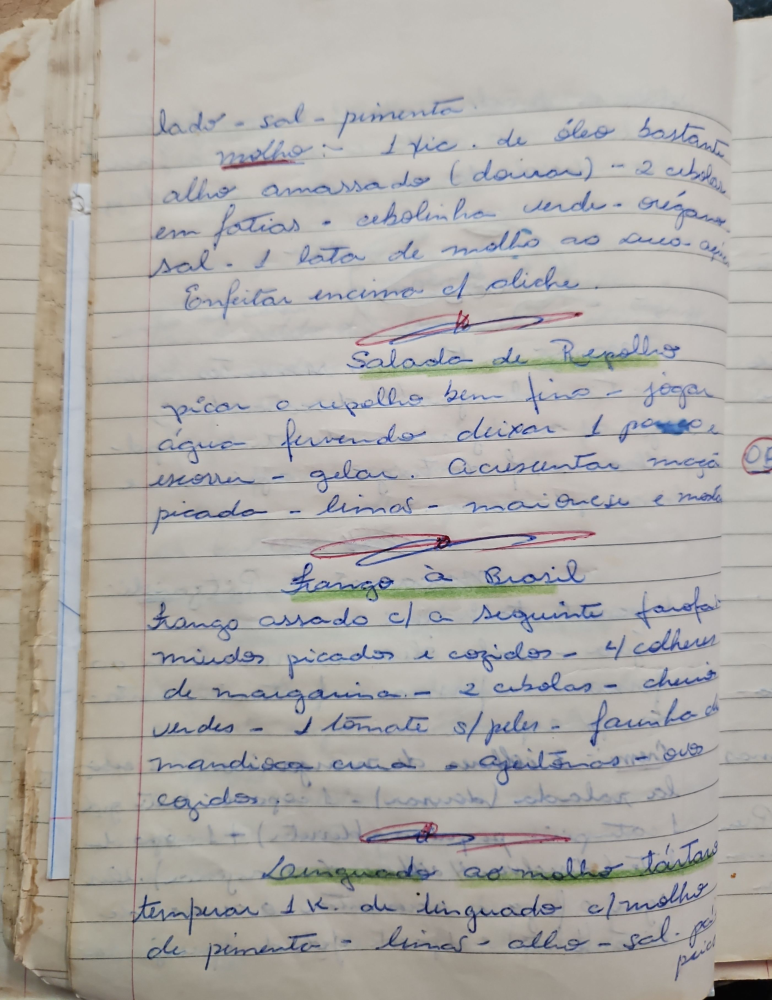 lado - sal - pimenta.
molho :- 1 xic. de óleo bastante
alho amassado (dourar) - 2 cebolas
em fatias - cebolinha verde - orégano
sal - 1 lata de molho ao suco -
Enfeitar encima c/ aliche.
Salada de Repolho
picar o repolho bem fino - jogar
água fervendo deixar 1 pouco,
escorrer - gelar. Acrescentar maçã
picada - limas - maionese e
Frango à Brasil
Frango assado c/ a seguinte farofa:
miudos picados e cozidos - 4 colheres
de margarina. - 2 cebolas - cheiro
verdes - 1 tomate s/peles - farinha de
mandioca crua - azeitonas - ovos
cozidos.
Linguado ao molho tártaro
temperar 1 K. de linguado c/molho
de pimenta - limas - alho - sal.